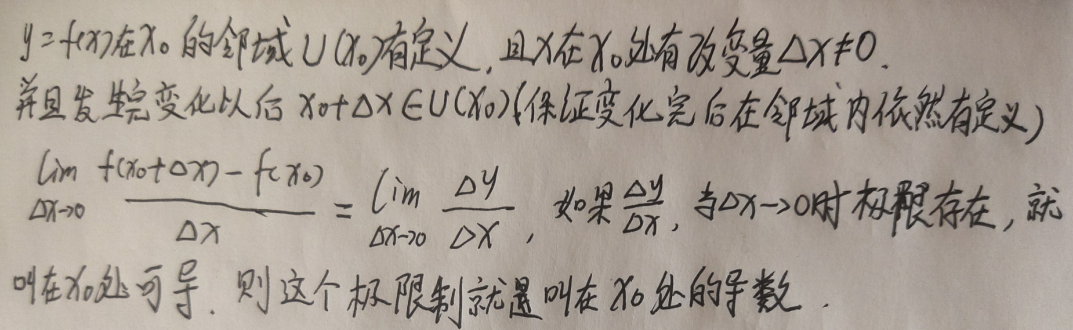 y=f(x)在x₀的邻域U(x₀)有定义,且x在x₀处有改变量Δx≠0.
并且发生完变化以后x₀+Δx∈U(x₀)(保证变化完后在邻域内依然有定义)
lim Δx→0 f(x₀+Δx)-f(x₀) / Δx = lim Δx→0 Δy/Δx,如果Δy/Δx,当Δx→0时极限存在,就
叫在x₀处可导.则这个极限制就是叫在x₀处的导数.